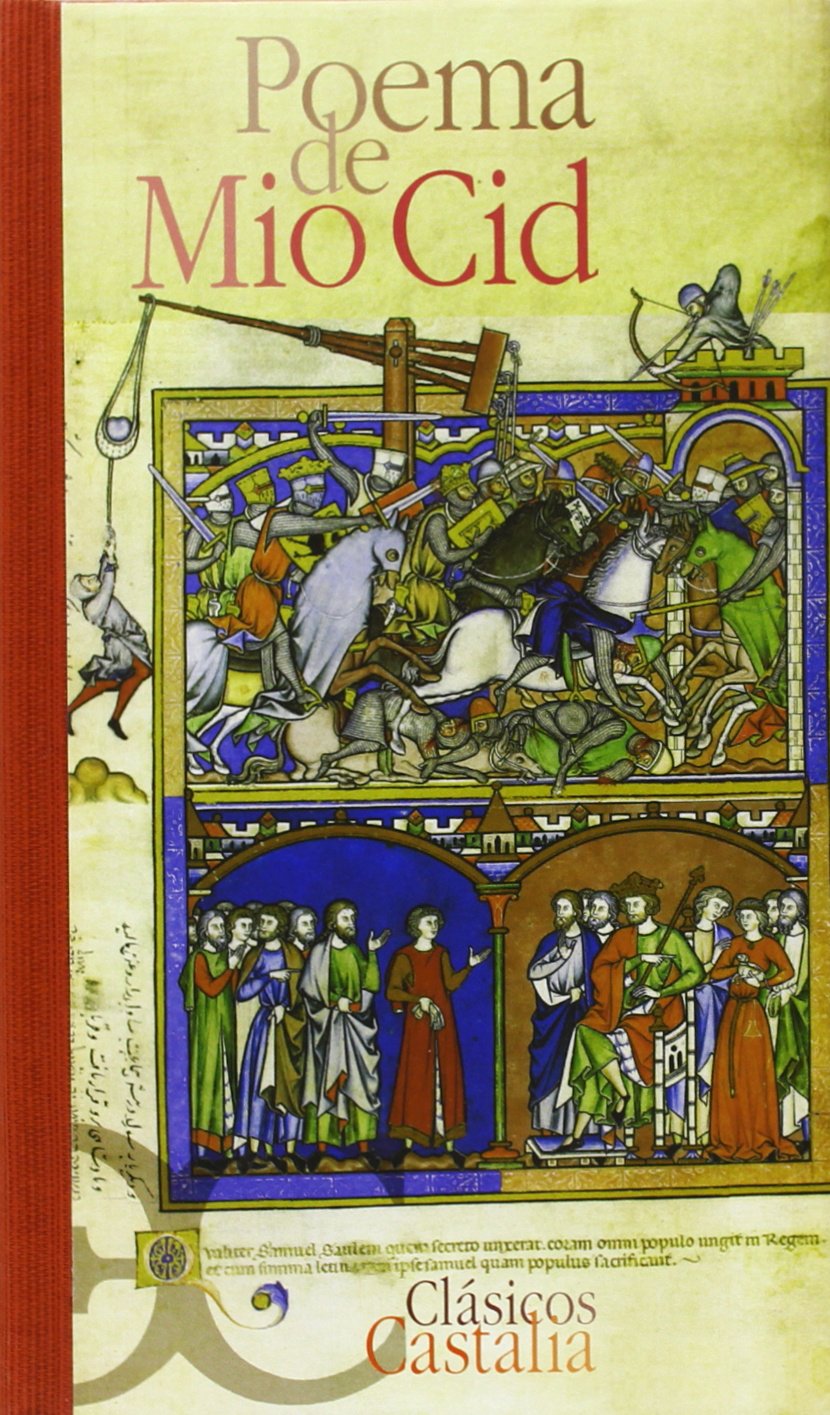 Poema
de
Mio Cid
valiter Samuel Saulem quem secreto unxerat. coram omni populo ungit in Regem.
et cum summa leticia ipse samuel quam populus sacrificavit.
Clásicos
Castalia